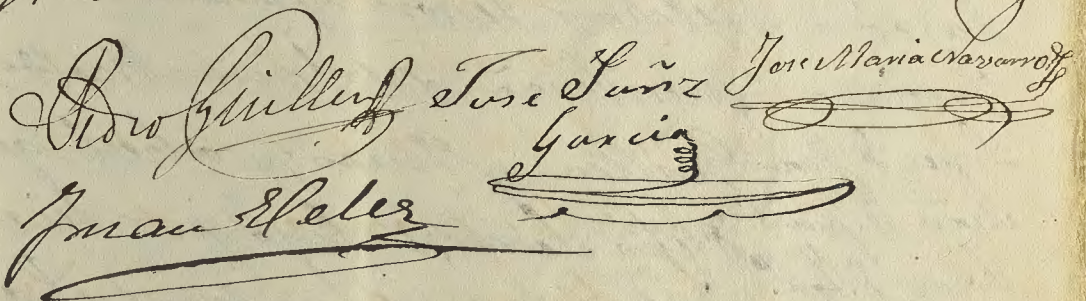 Pedro Guillen
Jose Sañz
Garcia
Jose Maria Navarro
Juan